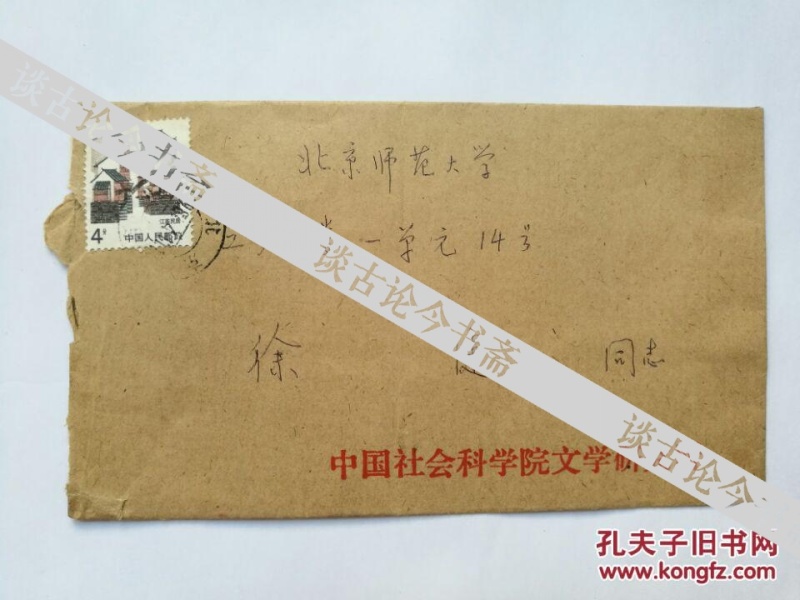 北京师范大学
一单元14号
徐
同志
中国社会科学院文学研
4分
中国人民邮政
江苏民居
谈古论今书斋
谈古论今书斋
谈古论今书斋
孔夫子旧书网
www.kongfz.com